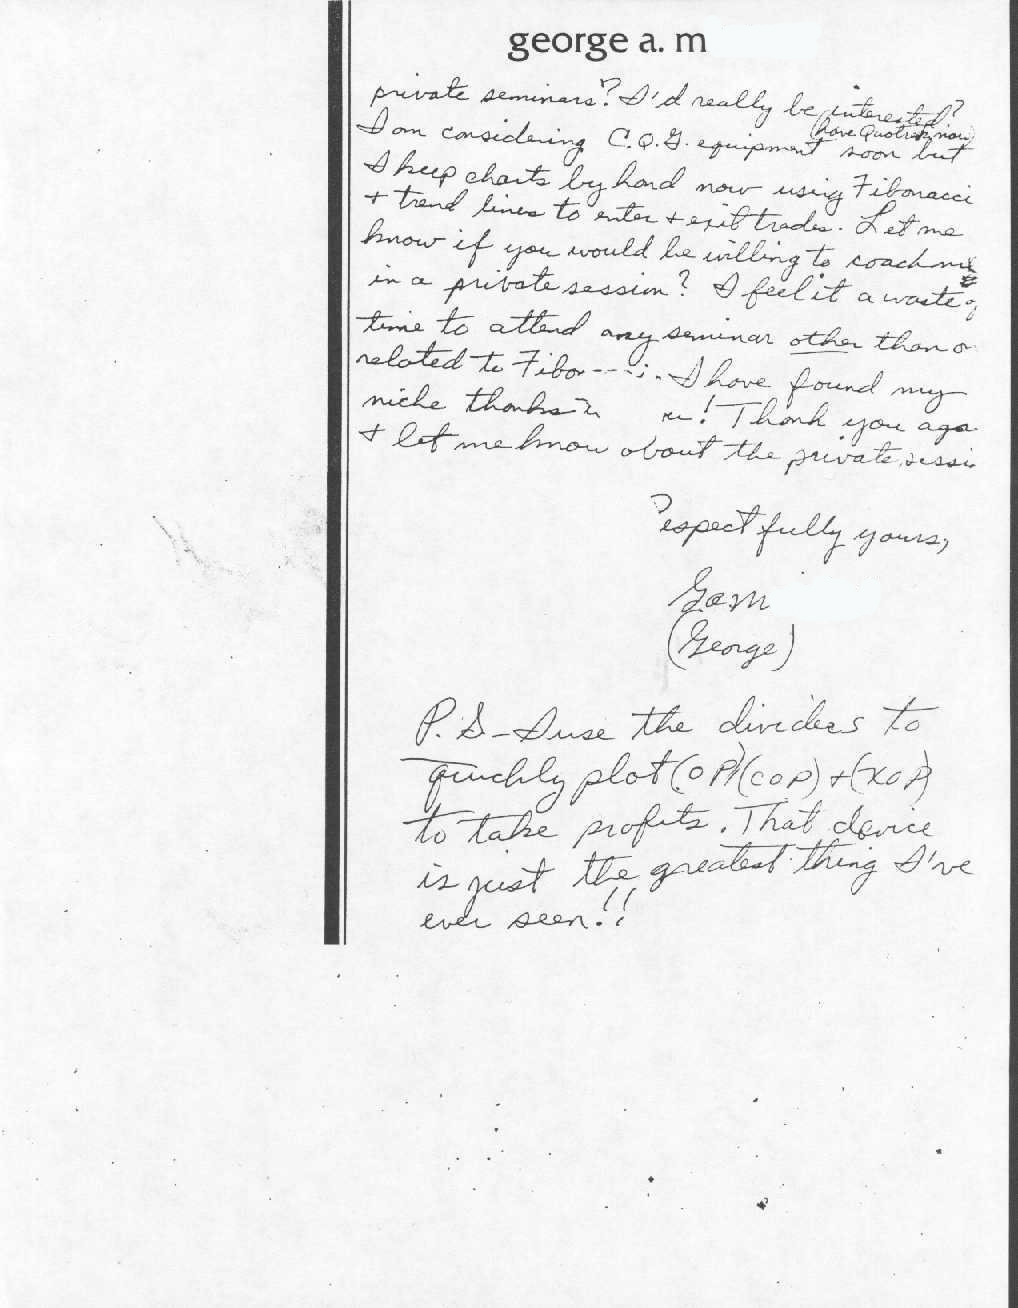 george a. m
private seminars? I'd really be interested?
(have Quotrek now)
I am considering C.Q.G. equipment soon but
I keep charts by hand now using Fibonacci
+ trend lines to enter + exit trades. Let me
know if you would be willing to coach me
in a private session? I feel it a waste of
time to attend any seminar other than
related to Fibo----i. I have found my
niche thanks ! Thank you aga
+ let me know about the private sessi
espectfully yours,
Gam
(George)
P.S - I use the dividers to
quickly plot (OP) (COP) + (XOP)
to take profits. That device
is just the greatest thing I've
ever seen!!